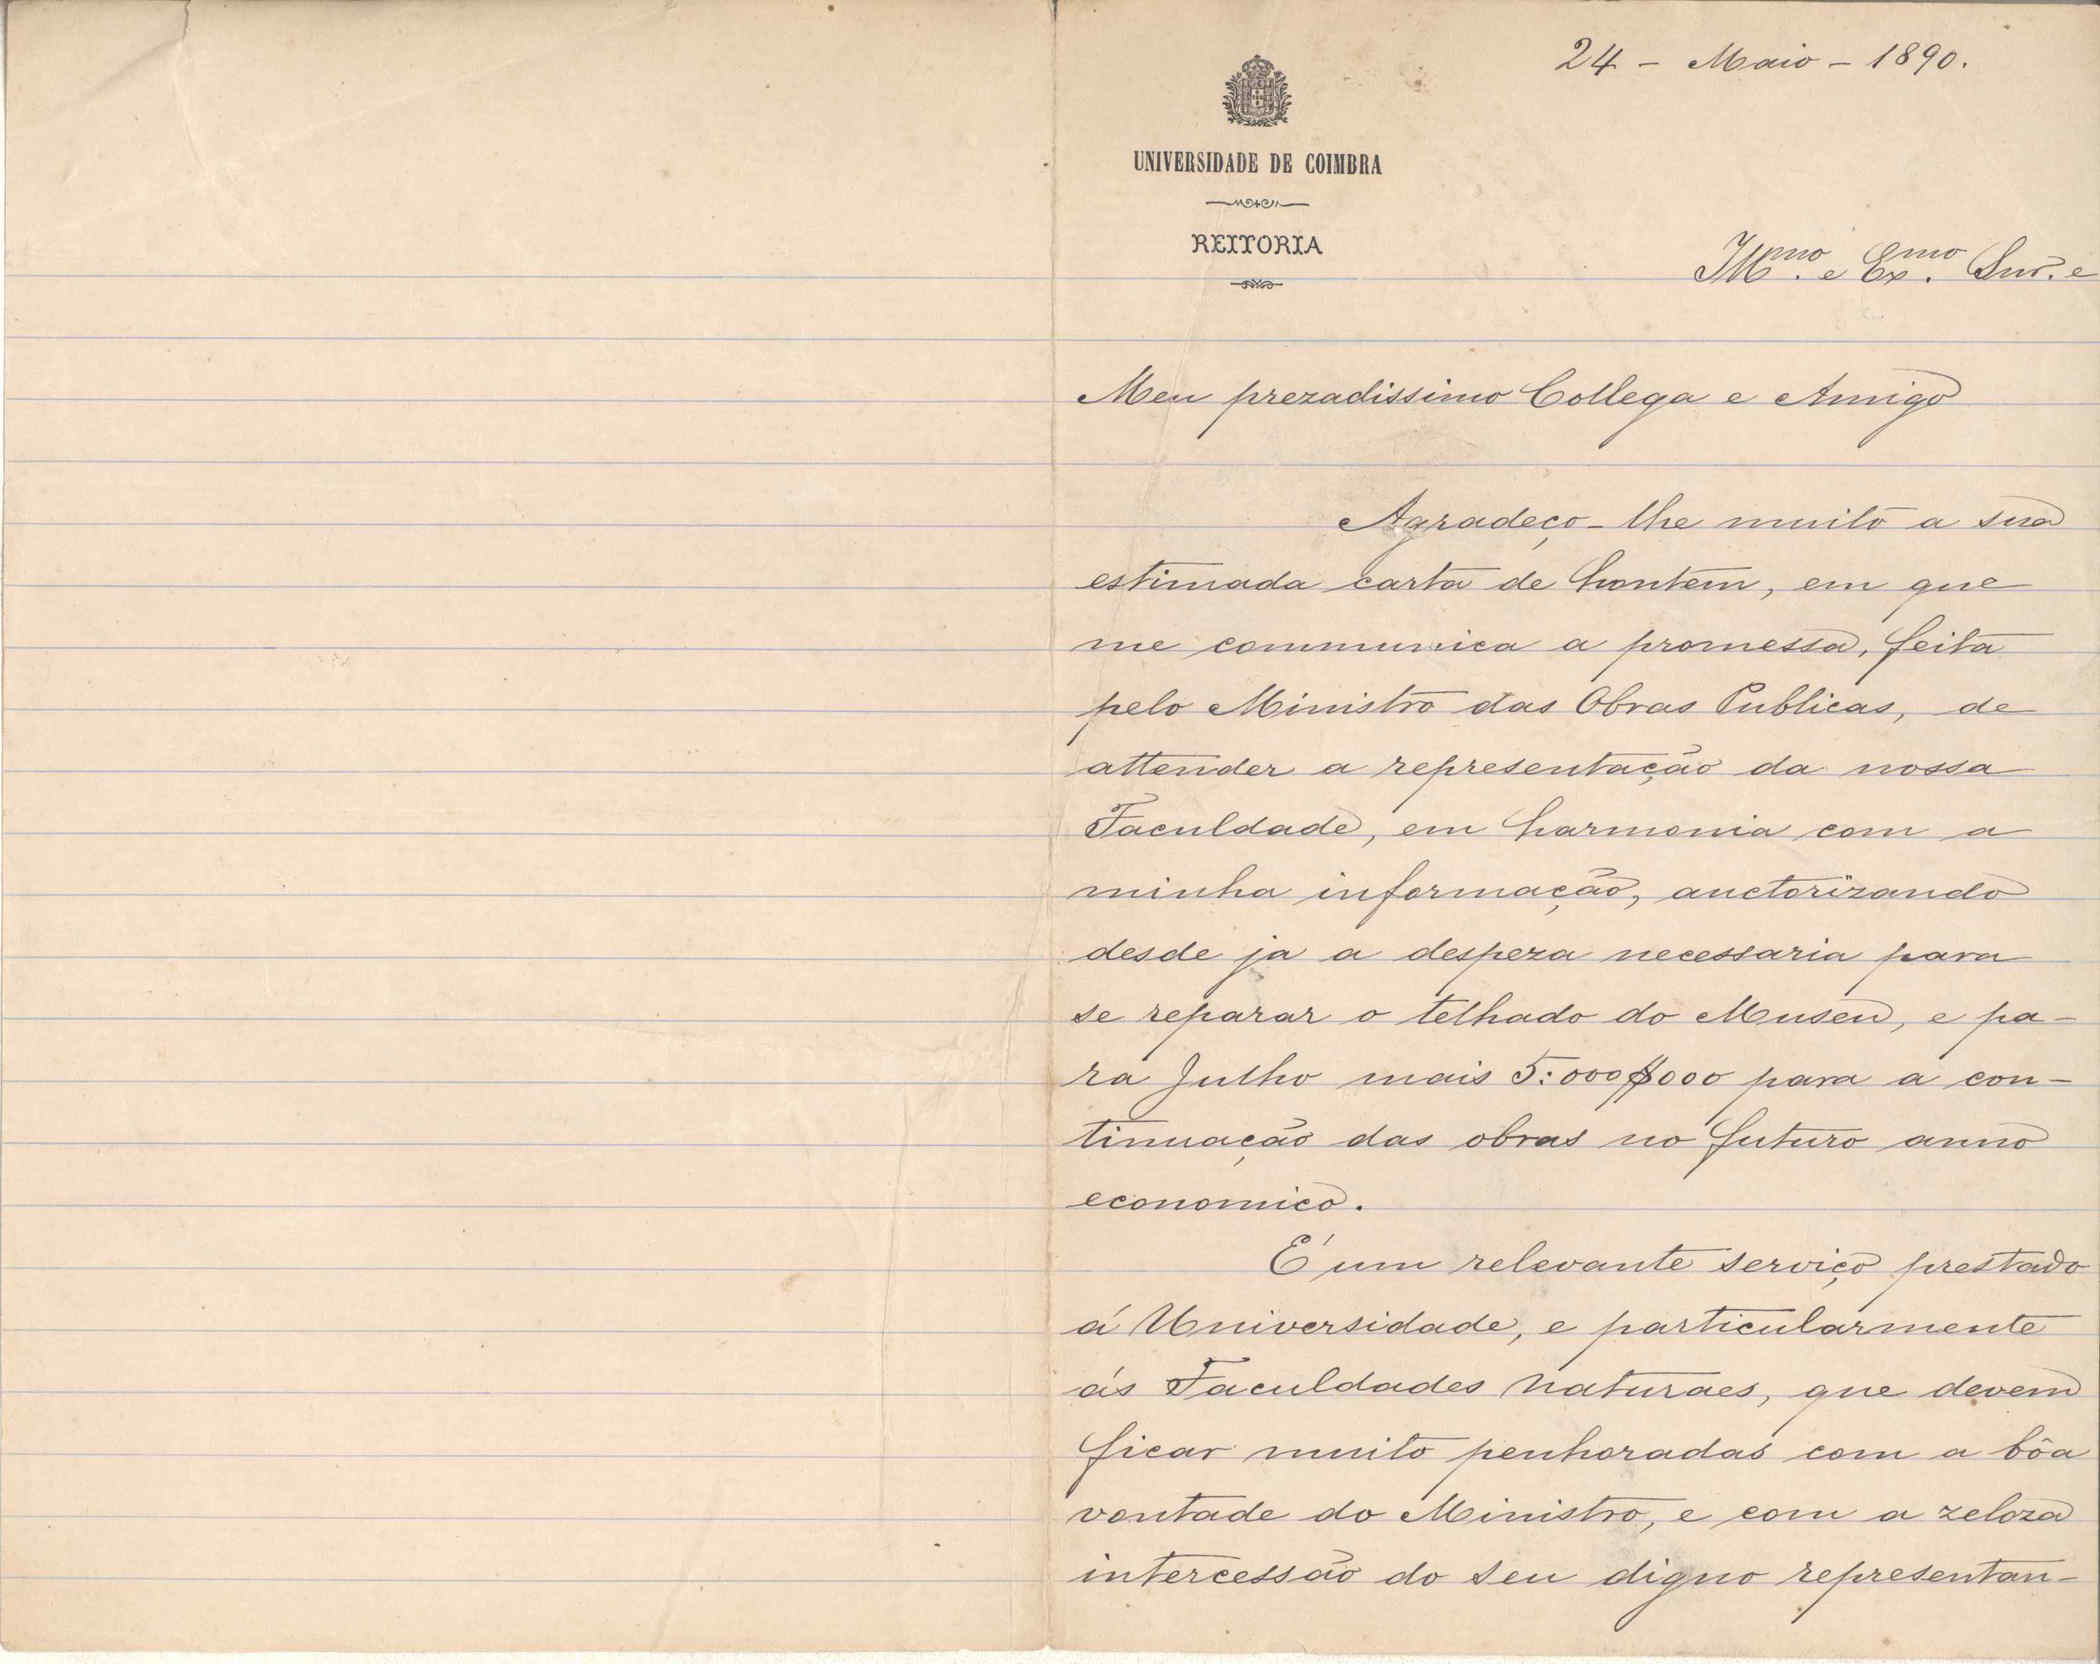 24 - Maio - 1890.
UNIVERSIDADE DE COIMBRA
REITORIA
Illmo. e Exmo. Snr. e
Meu prezadissimo Collega e Amigo
Agradeço-lhe muito a sua
estimada carta de hontem, em que
me communica a promessa, feita
pelo Ministro das Obras Publicas, de
attender a representação da nossa
Faculdade, em harmonia com a
minha informação, auctorizando
desde ja a despeza necessaria para
se reparar o telhado do Museu, e pa-
ra Julho mais 5:000$000 para a con-
tinuação das obras no futuro anno
economico.
É um relevante serviço prestado
á Universidade, e particularmente
ás Faculdades naturaes, que devem
ficar muito penhoradas com a bôa
vontade do Ministro, e com a zeloza
intercessão do seu digno representan-